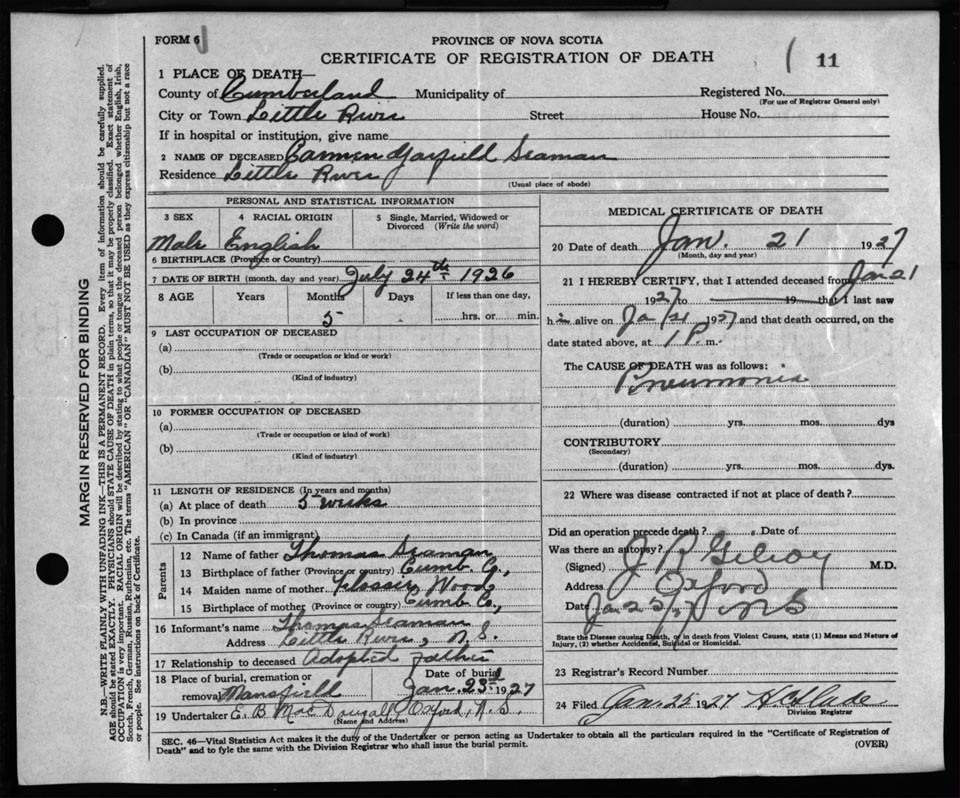 FORM 6
PROVINCE OF NOVA SCOTIA
CERTIFICATE OF REGISTRATION OF DEATH
11
1 PLACE OF DEATH—
County of Cumberland Municipality of
Registered No.
(For use of Registrar General only)
City or Town Little River Street
House No.
If in hospital or institution, give name
2 NAME OF DECEASED Carmen Garfield Seaman
Residence Little River
(Usual place of abode)
PERSONAL AND STATISTICAL INFORMATION
3 SEX 4 RACIAL ORIGIN 5 Single, Married, Widowed or
Divorced (Write the word)
Male English
6 BIRTHPLACE (Province or Country)
7 DATE OF BIRTH (month, day and year) July 24th 1926
8 AGE Years Months Days If less than one day,
5 hrs. or min.
9 LAST OCCUPATION OF DECEASED
(a)
(Trade or occupation or kind or work)
(b)
(Kind of industry)
10 FORMER OCCUPATION OF DECEASED
(a)
(Trade or occupation or kind of work)
(b)
(Kind of industry)
11 LENGTH OF RESIDENCE (In years and months)
(a) At place of death 5 weeks
(b) In province
(c) In Canada (if an immigrant)
Parents
12 Name of father Thomas Seaman
13 Birthplace of father (Province or country) Cumb. Co.,
14 Maiden name of mother Flossie Wood
15 Birthplace of mother (Province or country) Cumb Co,
16 Informant's name Thomas Seaman
Address Little River, N.S.
17 Relationship to deceased Adopted father
18 Place of burial, cremation or
removal Mansfield
Date of burial
Jan. 23rd 1927
19 Undertaker E. B. MacDougall Oxford, N.S.
(Name and Address)
MEDICAL CERTIFICATE OF DEATH
20 Date of death Jan. 21 1927
(Month, day and year)
21 I HEREBY CERTIFY, that I attended deceased from Jan 21
1927 to 19 that I last saw
h alive on Jan 21 1927 and that death occurred, on the
date stated above, at 1 P. m.
The CAUSE OF DEATH was as follows:
Pneumonia
(duration) yrs. mos. dys
CONTRIBUTORY
(Secondary)
(duration) yrs. mos. dys.
22 Where was disease contracted if not at place of death?
Did an operation precede death? Date of
Was there an autopsy?
(Signed) J R Gilroy M.D.
Address Oxford
Date Jan 25/27 NS
State the Disease causing Death, or in death from Violent Causes, state (1) Means and Nature of
Injury, (2) whether Accidental, Suicidal or Homicidal.
23 Registrar's Record Number
24 Filed Jan 25 1927
Division Registrar
SEC. 46—Vital Statistics Act makes it the duty of the Undertaker or person acting as Undertaker to obtain all the particulars required in the "Certificate of Registration of
Death" and to fyle the same with the Division Registrar who shall issue the burial permit.
(OVER)
MARGIN RESERVED FOR BINDING
N.B.—WRITE PLAINLY WITH UNFADING INK—THIS IS A PERMANENT RECORD. Every item of information should be carefully supplied.
AGE should be stated EXACTLY. PHYSICIANS should STATE CAUSE OF DEATH in plain terms, so that it may be properly classified. Exact statement of
OCCUPATION is very important. RACIAL ORIGIN will be described by stating to what people or tongue the deceased person belonged whether English, Irish,
Scotch, French, German, Russian, Ruthenian, etc. The terms "AMERICAN" OR "CANADIAN" MUST NOT BE USED as they express citizenship but not a race
or people. See instructions on back of Certificate.